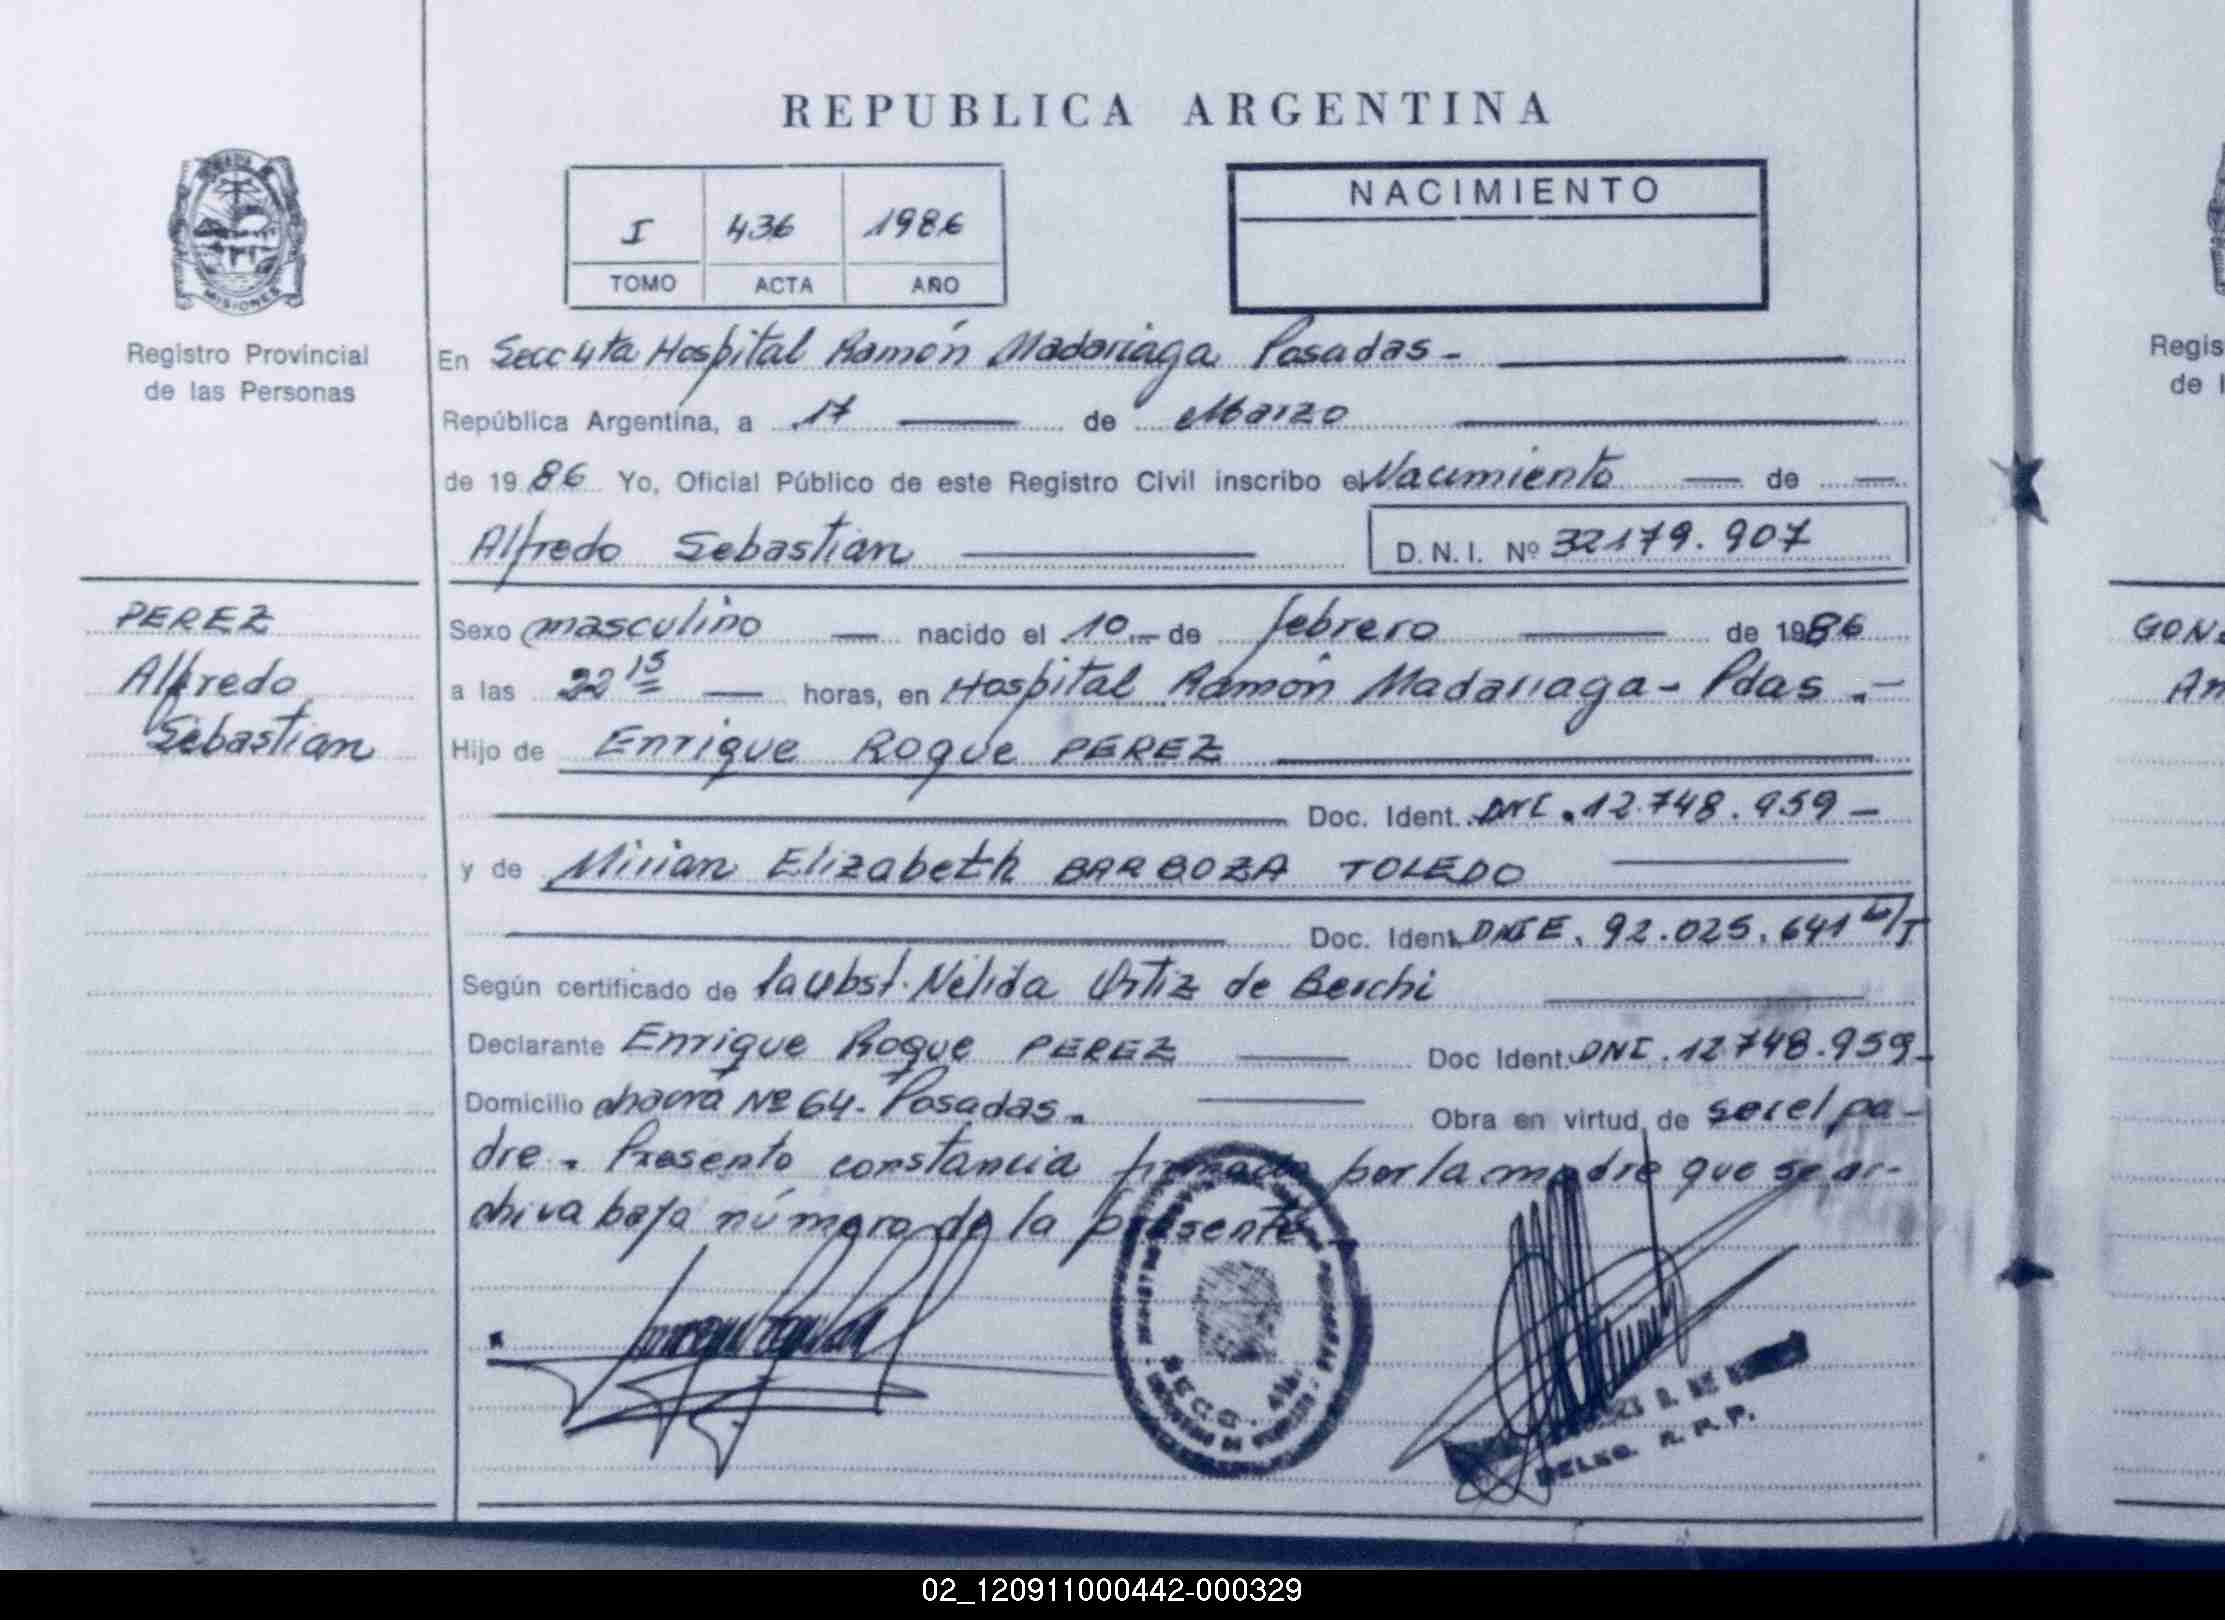 REPUBLICA ARGENTINA
MISIONES
Registro Provincial
de las Personas
I 436 1986
TOMO ACTA AÑO
NACIMIENTO
En Secc 4ta Hospital Ramón Madariaga Posadas -
República Argentina, a 17 de Marzo
de 1986 Yo, Oficial Público de este Registro Civil inscribo el Nacimiento de
Alfredo Sebastian
D.N.I. Nº 32179.907
PEREZ
Alfredo
Sebastian
Sexo masculino nacido el 10 de febrero de 1986
a las 22 15 horas, en Hospital Ramón Madariaga - Pdas.-
Hijo de Enrique Roque PEREZ
Doc. Ident. DNI. 12.748.959 -
y de Mirian Elizabeth BARBOZA TOLEDO
Doc. Ident. 92.025.641
Según certificado de la obst. Nélida Ortiz de Berchi
Declarante Enrique Roque PEREZ Doc Ident. DNI. 12.748.959 -
Domicilio chacra Nº 64 - Posadas. Obra en virtud de ser el pa-
dre. Presento constancia firmada por la madre que se ar-
chiva bajo número de la presente
SECC. 4ta.
DELEG. R. P. P.
Regis
de l
GON
An
02_120911000442-000329